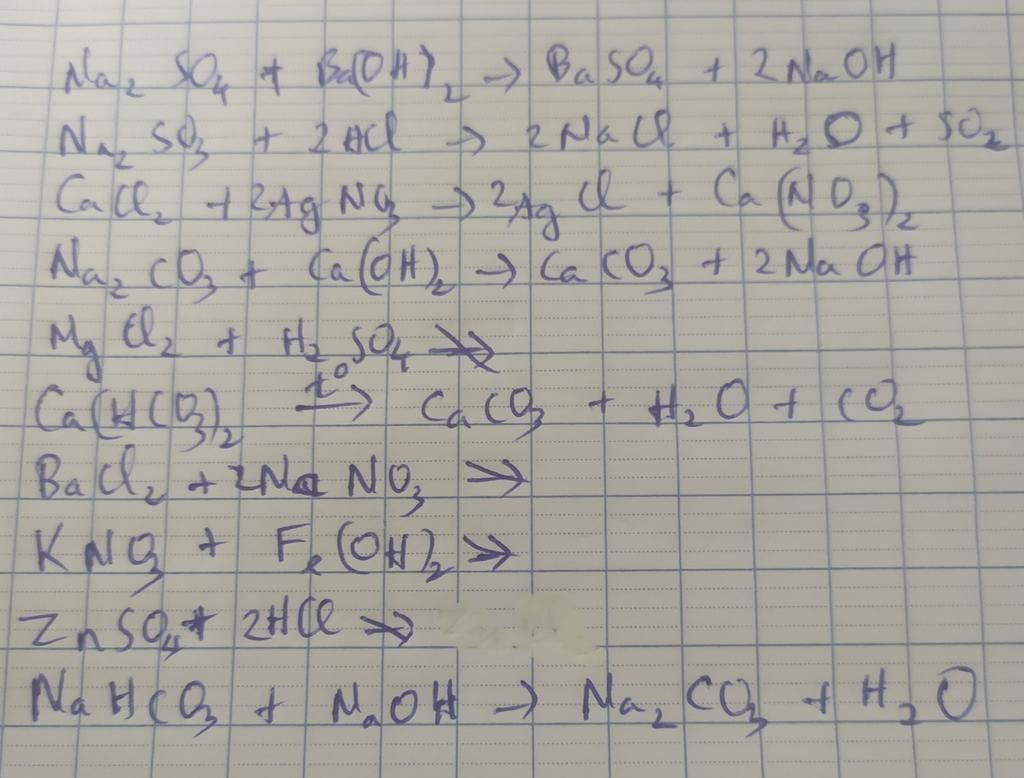 Na₂SO₄ + Ba(OH)₂ → BaSO₄ + 2NaOH
Na₂SO₃ + 2HCl → 2NaCl + H₂O + SO₂
CaCl₂ + 2AgNO₃ → 2AgCl + Ca(NO₃)₂
Na₂CO₃ + Ca(OH)₂ → CaCO₃ + 2NaOH
MgCl₂ + H₂SO₄ ↛
Ca(HCO₃)₂ t° → CaCO₃ + H₂O + CO₂
BaCl₂ + 2NaNO₃ ↛
KNO₃ + Fe(OH)₂ ↛
ZnSO₄ + 2HCl ↛
NaHCO₃ + NaOH → Na₂CO₃ + H₂O